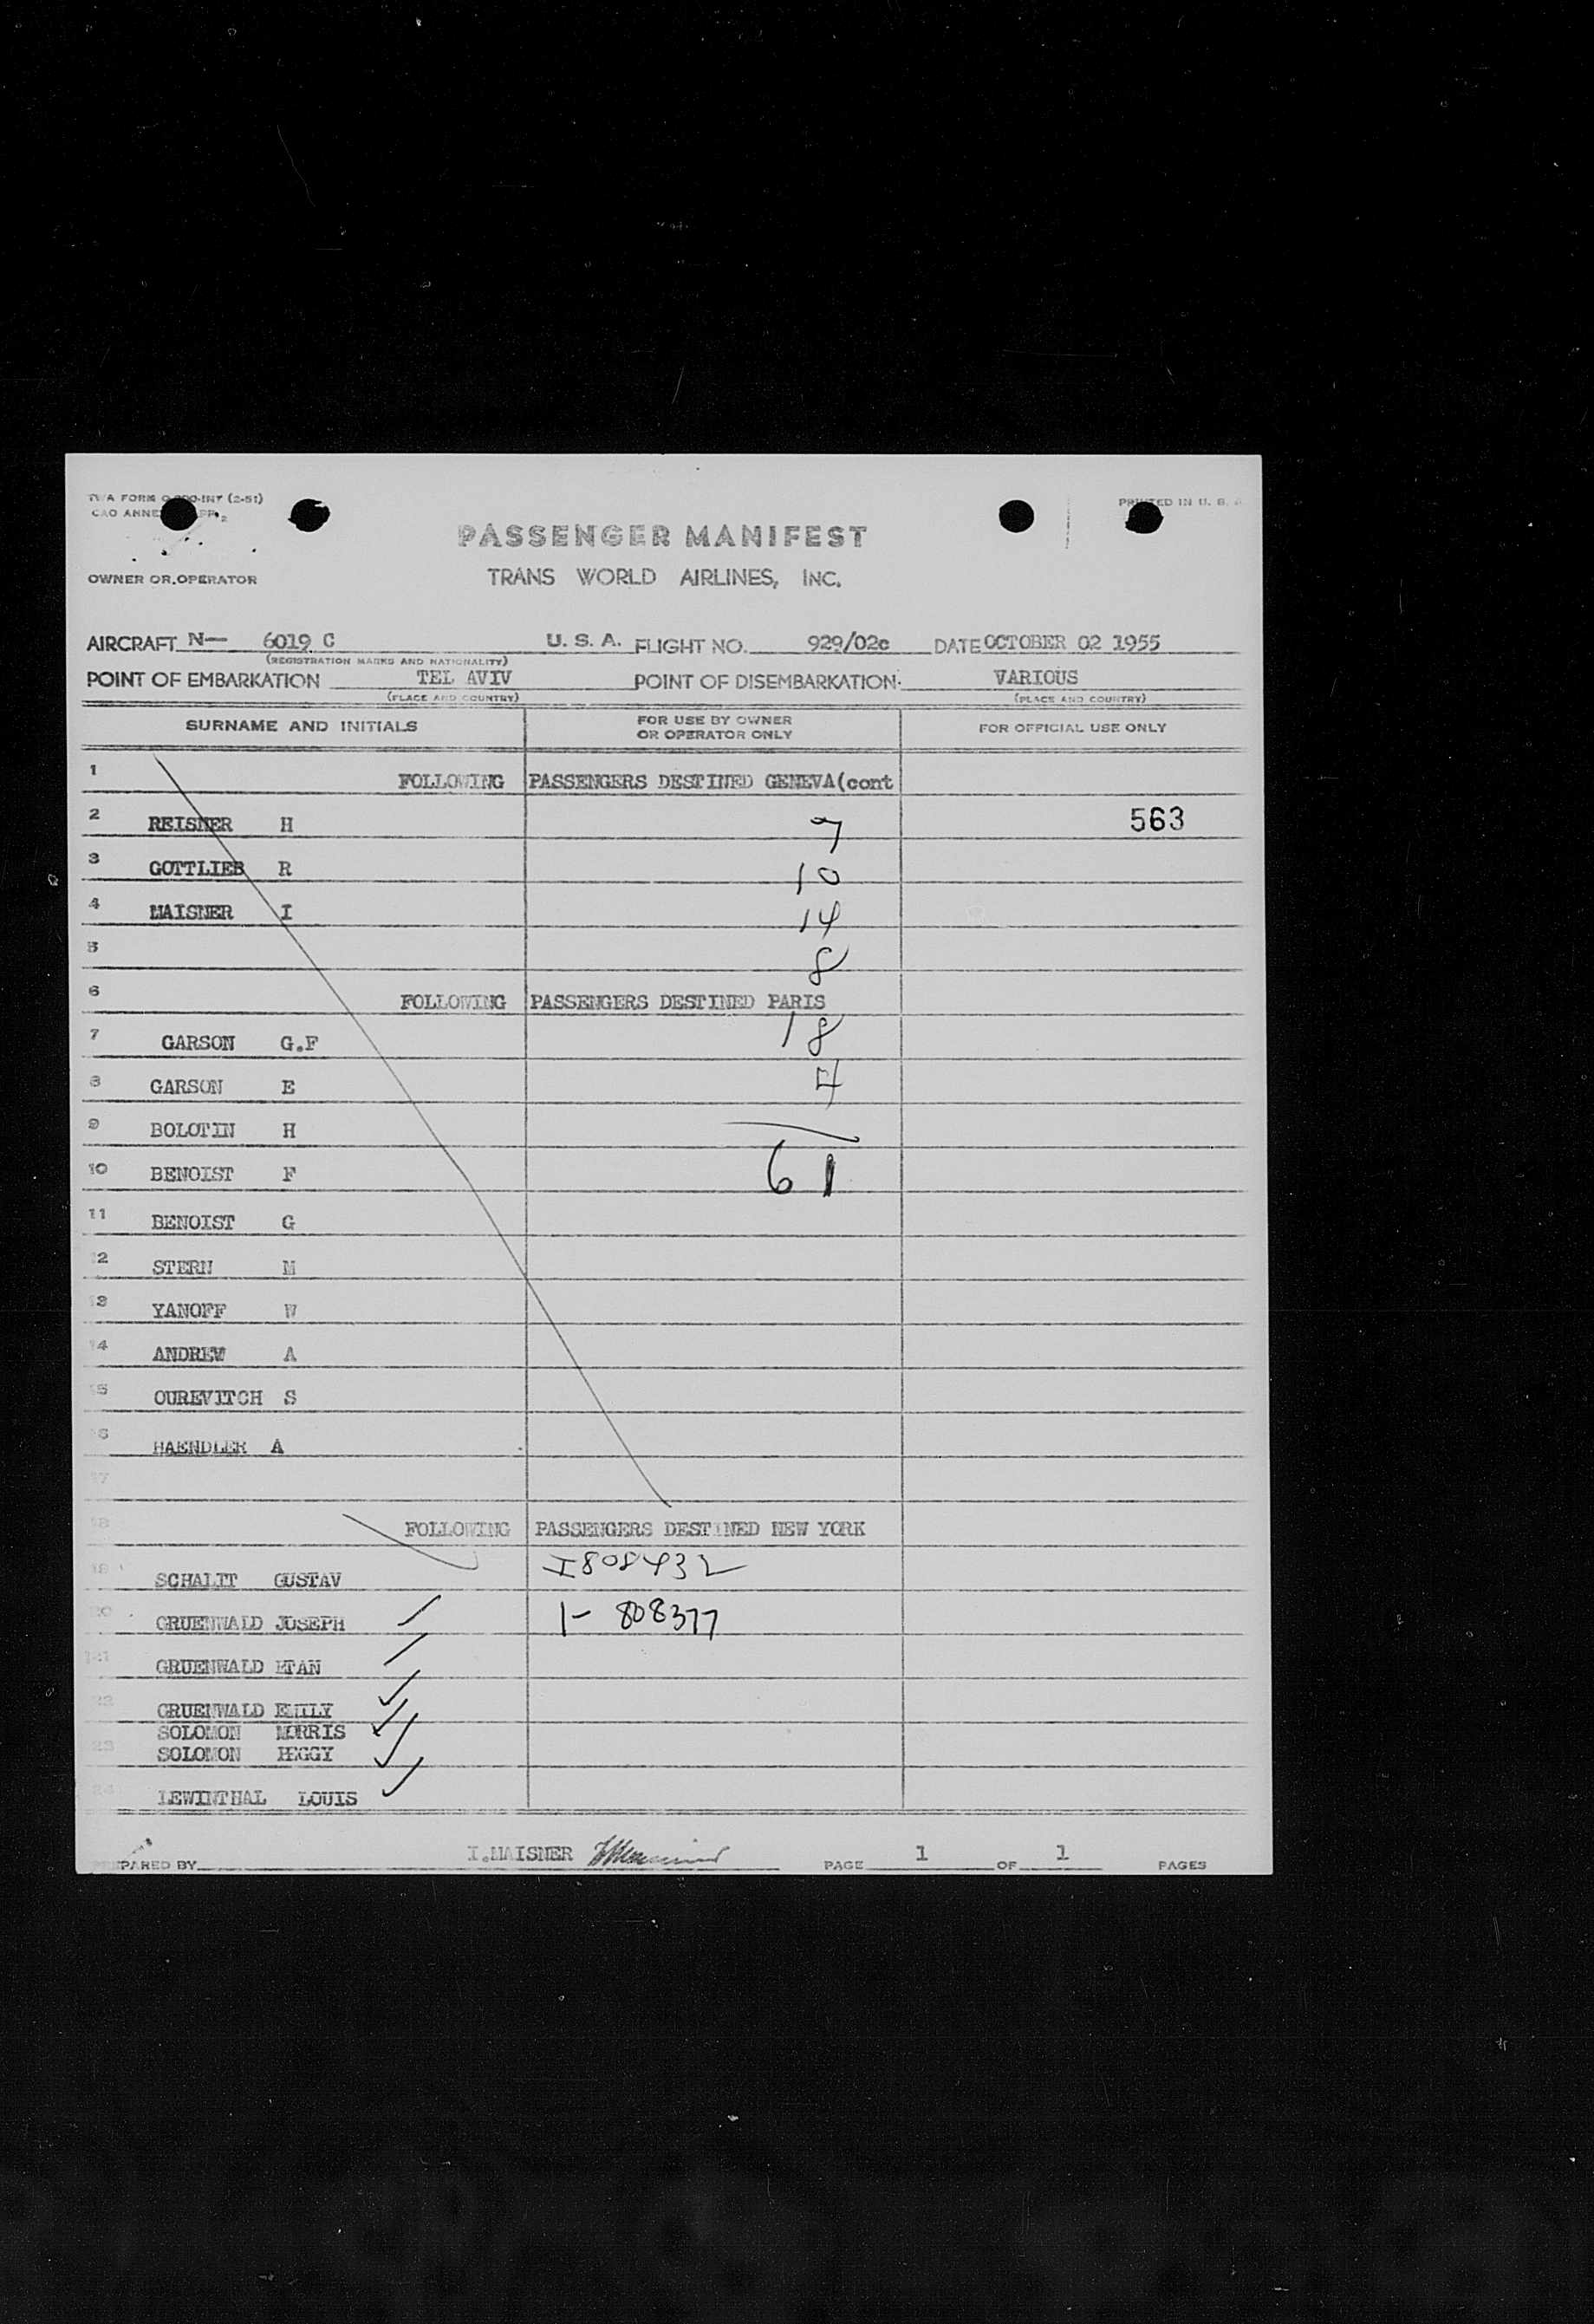 TWA FORM (2-51)
PRINTED IN U. S. A.
PASSENGER MANIFEST
OWNER OR OPERATOR TRANS WORLD AIRLINES, INC.
AIRCRAFT N— 6019 C U. S. A. FLIGHT NO. 929/02c DATE OCTOBER 02 1955
(REGISTRATION MARKS AND NATIONALITY)
POINT OF EMBARKATION TEL AVIV POINT OF DISEMBARKATION VARIOUS
(PLACE AND COUNTRY) (PLACE AND COUNTRY)
SURNAME AND INITIALS FOR USE BY OWNER OR OPERATOR ONLY FOR OFFICIAL USE ONLY
1 FOLLOWING PASSENGERS DESTINED GENEVA(cont
2 REISNER H 7 563
3 GOTTLIEB R 10
4 MAISNER I 14
5 8
6 FOLLOWING PASSENGERS DESTINED PARIS
7 GARSON G.F 18
8 GARSON E 4
9 BOLOTIN H
10 BENOIST F 61
11 BENOIST G
12 STERN M
13 YANOFF W
14 ANDREW A
15 OUREVITCH S
16 HAENDLER A
17
18 FOLLOWING PASSENGERS DESTINED NEW YORK
19 SCHALIT GUSTAV I808432
20 GRUENWALD JOSEPH 1- 808377
21 GRUENWALD ETAN
22 GRUENWALD EMILY
SOLOMON MORRIS
23 SOLOMON PEGGY
24 LEWINTHAL LOUIS
PREPARED BY I.MAISNER PAGE 1 OF 1 PAGES